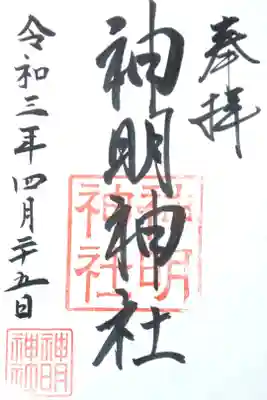 奉拝
神明神社
神明
神社
令和三年四月二十五日
神明
神社